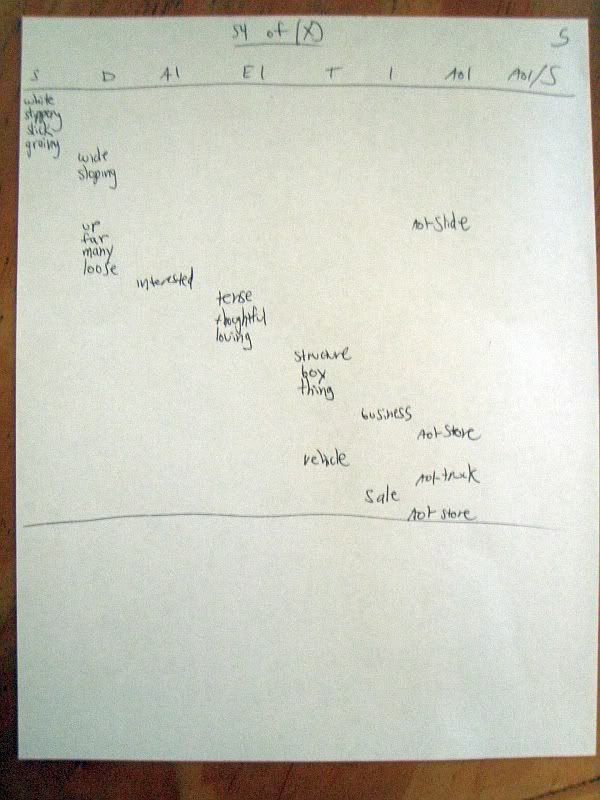 S4 of (X)
5
S D AI EI T I Aol Aol/S
white
slippery
slick
grainy
wide
sloping
up
Aol-Slide
far
many
loose
interested
tense
thoughtful
loving
structure
box
thing
business
Aol-Store
vehicle
Aol-truck
Sale
Aol-store